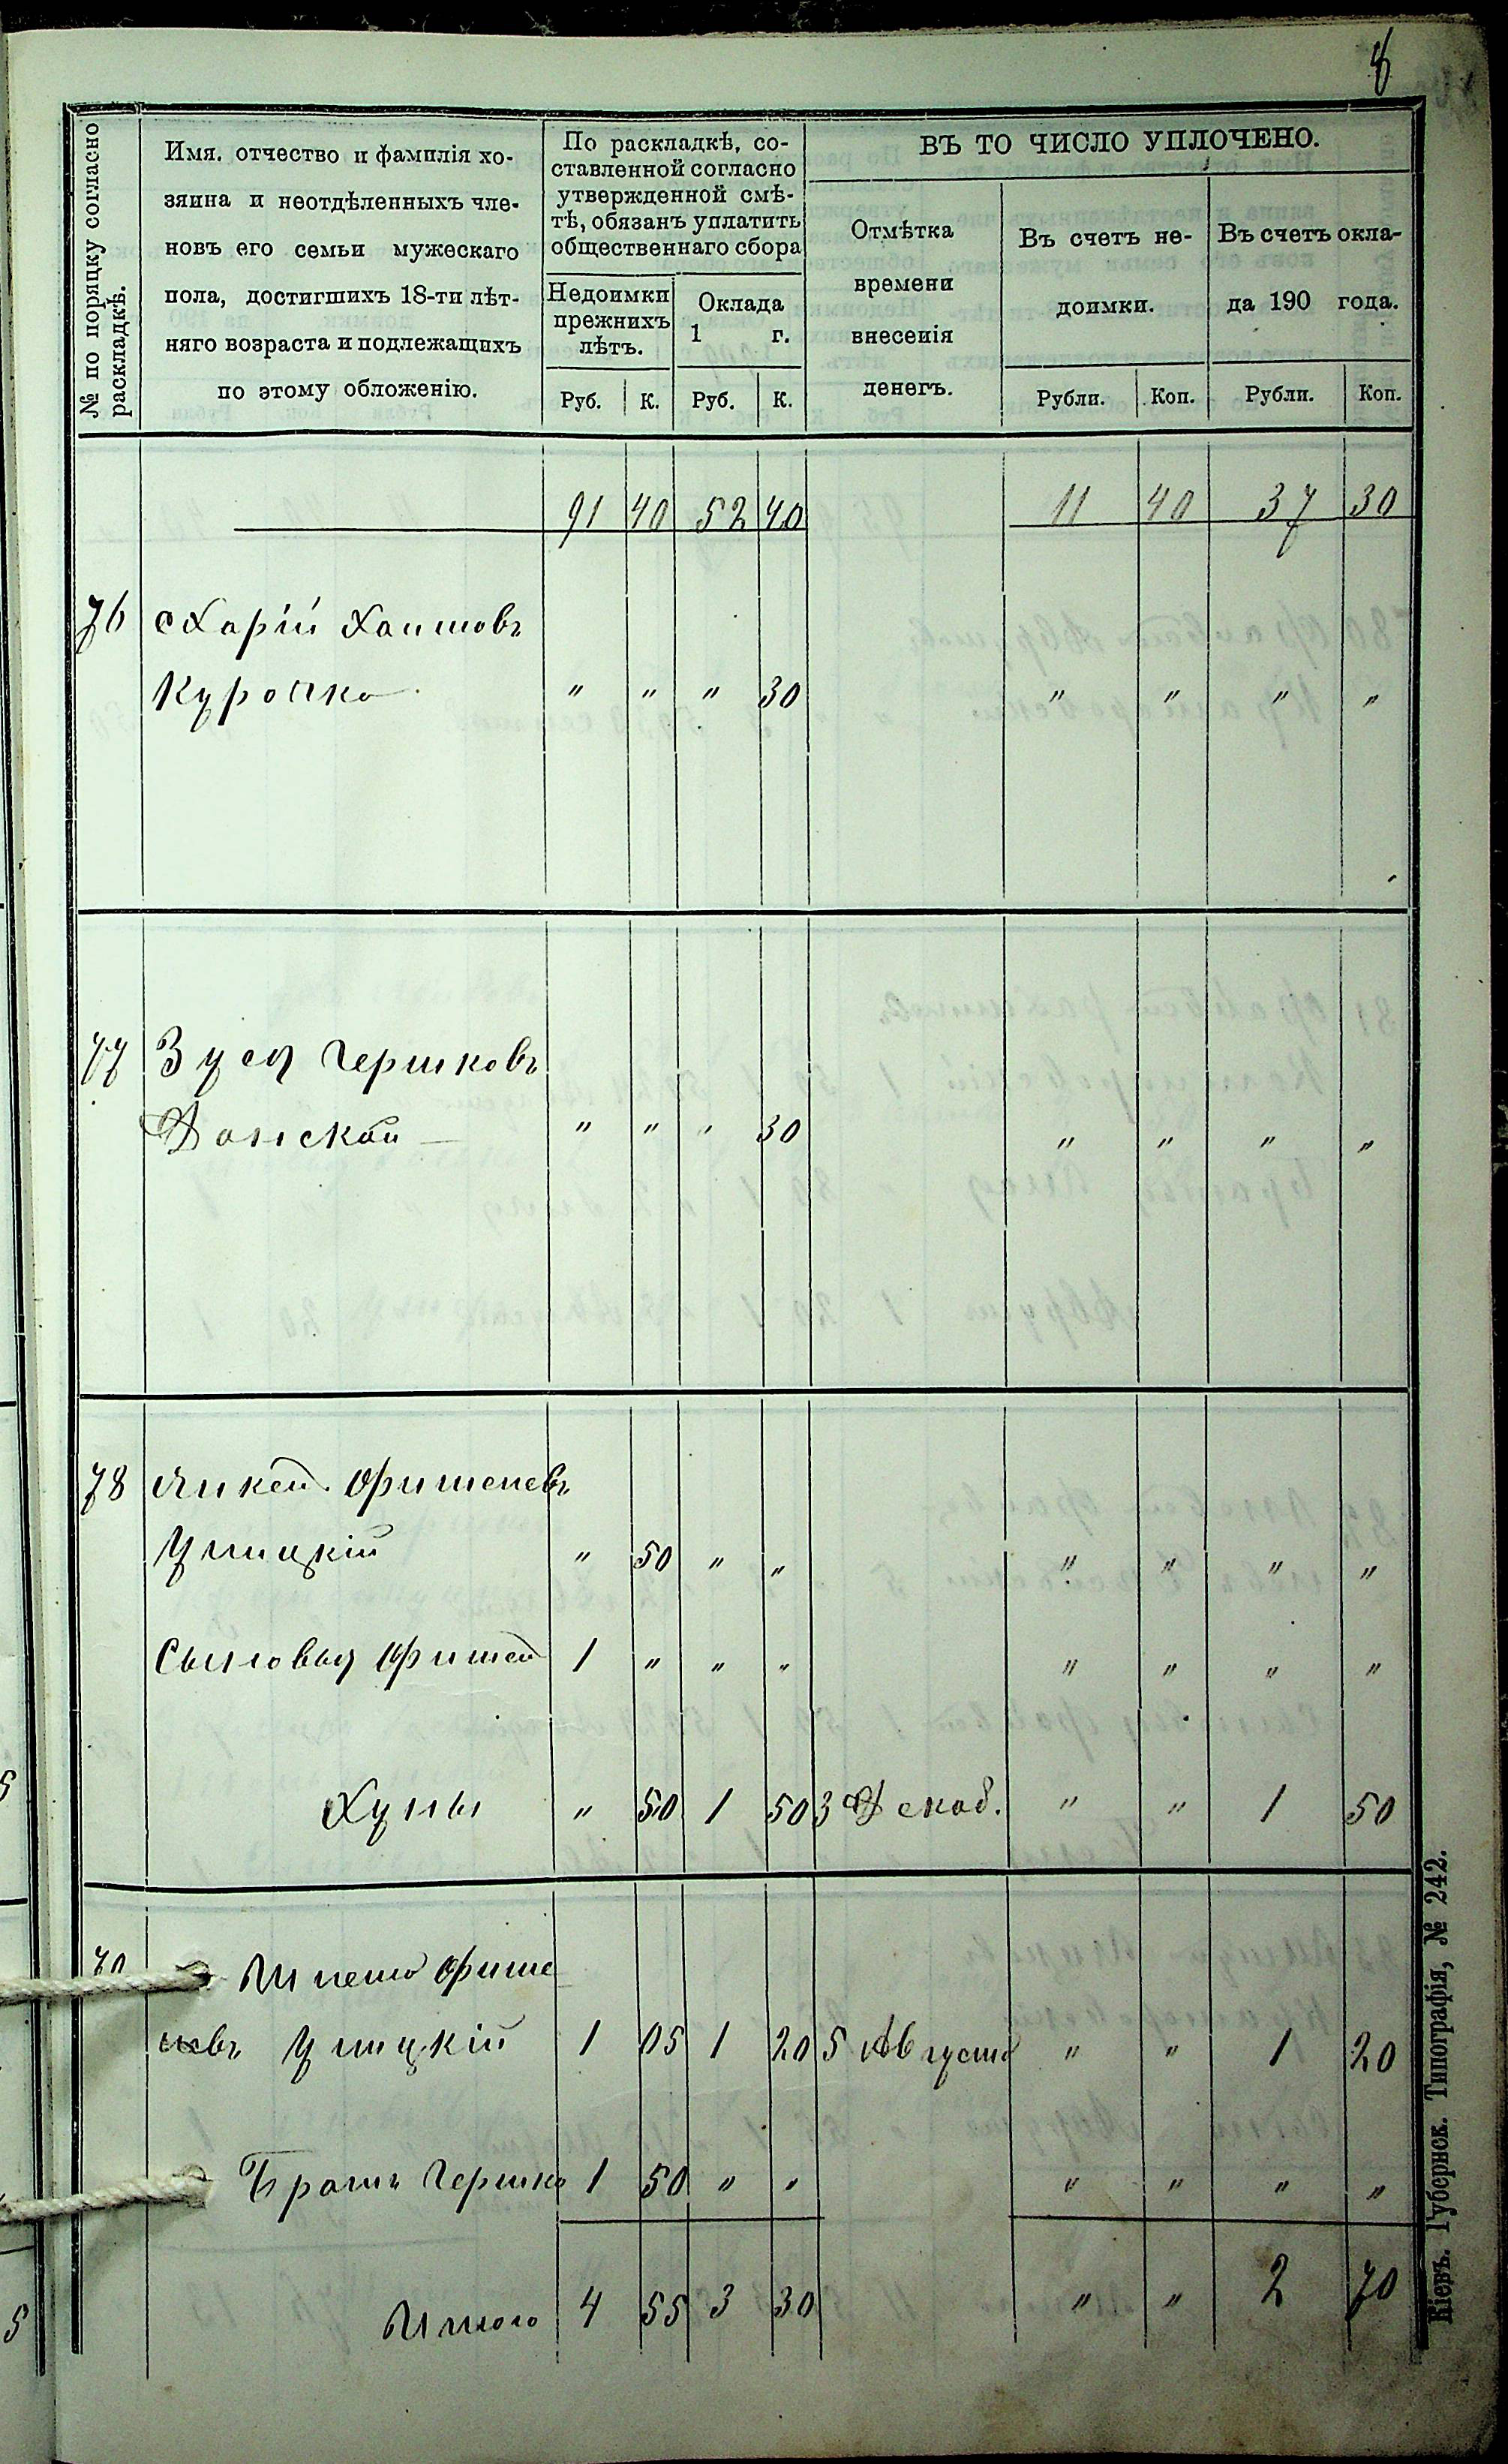 8
№ по порядку согласно раскладкѣ.
Имя. отчество и фамилія хо-
зяина и неотдѣленныхъ чле-
новъ его семьи мужескаго
пола, достигшихъ 18-ти лѣт-
няго возраста и подлежащихъ
по этому обложенію.
По раскладкѣ, со-
ставленной согласно
утвержденной смѣ-
тѣ, обязанъ уплатить
общественнаго сбора
Недоимки
прежнихъ
лѣтъ.
Оклада
1 г.
Руб. К. Руб. К.
ВЪ ТО ЧИСЛО УПЛОЧЕНО.
Отмѣтка
времени
внесенія
денегъ.
Въ счетъ не-
доимки.
Въ счетъ окла-
да 190 года.
Рубли. Коп. Рубли. Коп.
91 40 52 40 11 40 37 30
76 Харій Хаимовъ
Курочка " " " 30 " " " "
77 Зуся Гершковъ
Донской " " " 30 " " " "
78 Фишелевъ
Умицкій " 50 " " " " " "
Сыновья Фишель 1 " " " " " " "
Хуны " 50 1 50 3 Декаб. " " 1 50
Фише
левъ Умицкій 1 05 1 20 5 Августа " " 1 20
Братъ Гершко 1 50 " " " " " "
Итого 4 55 3 30 " " 2 70
Кіевъ. Губернск. Типографія, № 242.